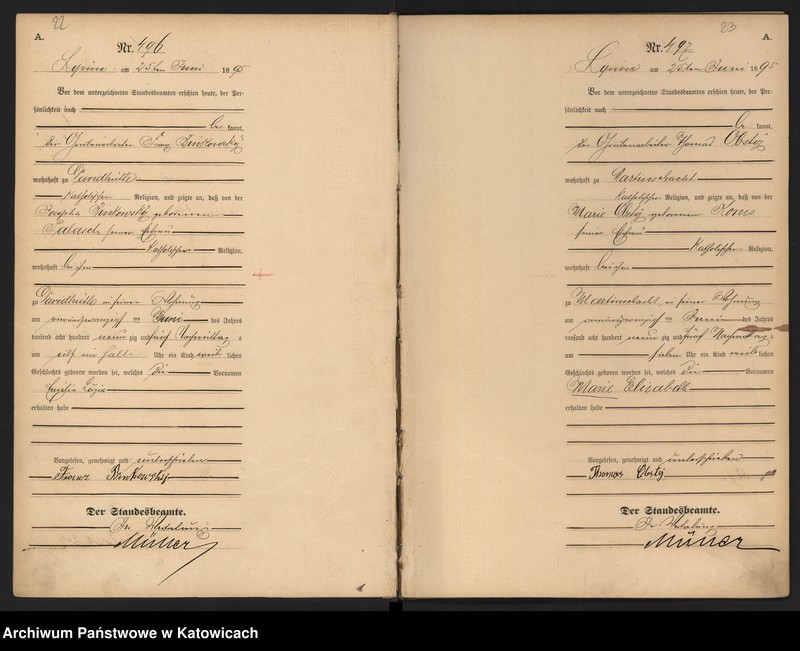 22
A.
Nr. 496
Lipine am 25ten Juni 1895
Vor dem unterzeichneten Standesbeamten erschien heute, der Per-
sönlichkeit nach
be kannt,
der Grubenarbeiter Franz
wohnhaft zu Davidhütte
katholischer Religion, und zeigte an, daß von der
Josepha geborenen
seiner Ehefrau
katholischer Religion,
wohnhaft bei ihm
zu Davidhütte in seiner Wohnung
am vierundzwanzigsten Juni des Jahres
tausend acht hundert neun zig und fünf Nachmittag s
um Uhr ein Kind weib lichen
Geschlechts geboren worden sei, welches die Vornamen
Luzia
erhalten habe
Vorgelesen, genehmigt und unterschrieben
Franz
Der Standesbeamte.
In Vertretung
Müller
23
A.
Nr. 497
Lipine am 25ten Juni 1895
Vor dem unterzeichneten Standesbeamten erschien heute, der Per-
sönlichkeit nach
be kannt,
der Grubenarbeiter Thomas
wohnhaft zu Martinschacht
katholischer Religion, und zeigte an, daß von der
Marie geborenen
seiner Ehefrau
katholischer Religion,
wohnhaft bei ihm
zu Martinschacht, in seiner Wohnung
am vierundzwanzigsten Juni des Jahres
tausend acht hundert neun zig und fünf Nachmittag s
um sieben Uhr ein Kind weib lichen
Geschlechts geboren worden sei, welches die Vornamen
Marie Elisabeth
erhalten habe
Vorgelesen, genehmigt und unterschrieben
Thomas
Der Standesbeamte.
In Vertretung
Müller
Archiwum Państwowe w Katowicach